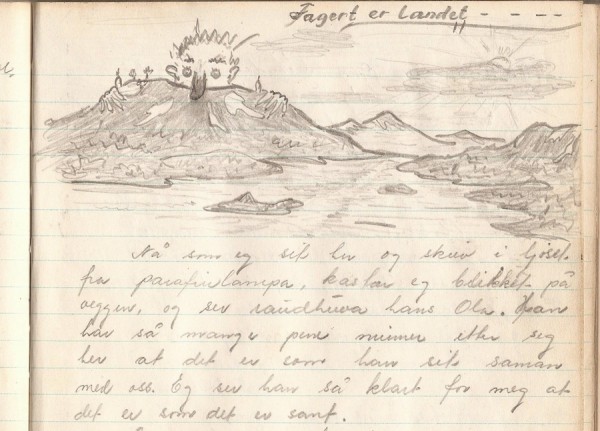 Fagert er landet - - - -
Nå som eg sit her og skriv i ljoset
fra parafinlampa, kastar eg blikket på
veggen, og ser raudhuva hans Ola. Han
har så mange pene minner etter seg
her at det er som han sit saman
med oss. Eg ser han så klart for meg at
det er som det er sant.